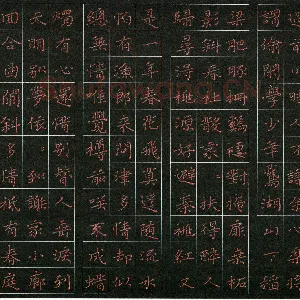 謂偷閒學少年鵝湖山下稻
粱肥豚柵雞棲對掩扉桑柘
影斜春社散家家扶得醉人
歸尋得桃源好避秦桃紅又
是一年春花飛莫遣隨流水
怕有漁郎來問津多情卻似
總無情惟覺樽前笑不成蠟
燭有心還惜別替人垂淚到
天明別夢依依到謝家小廊
回合曲闌斜多情只有春庭